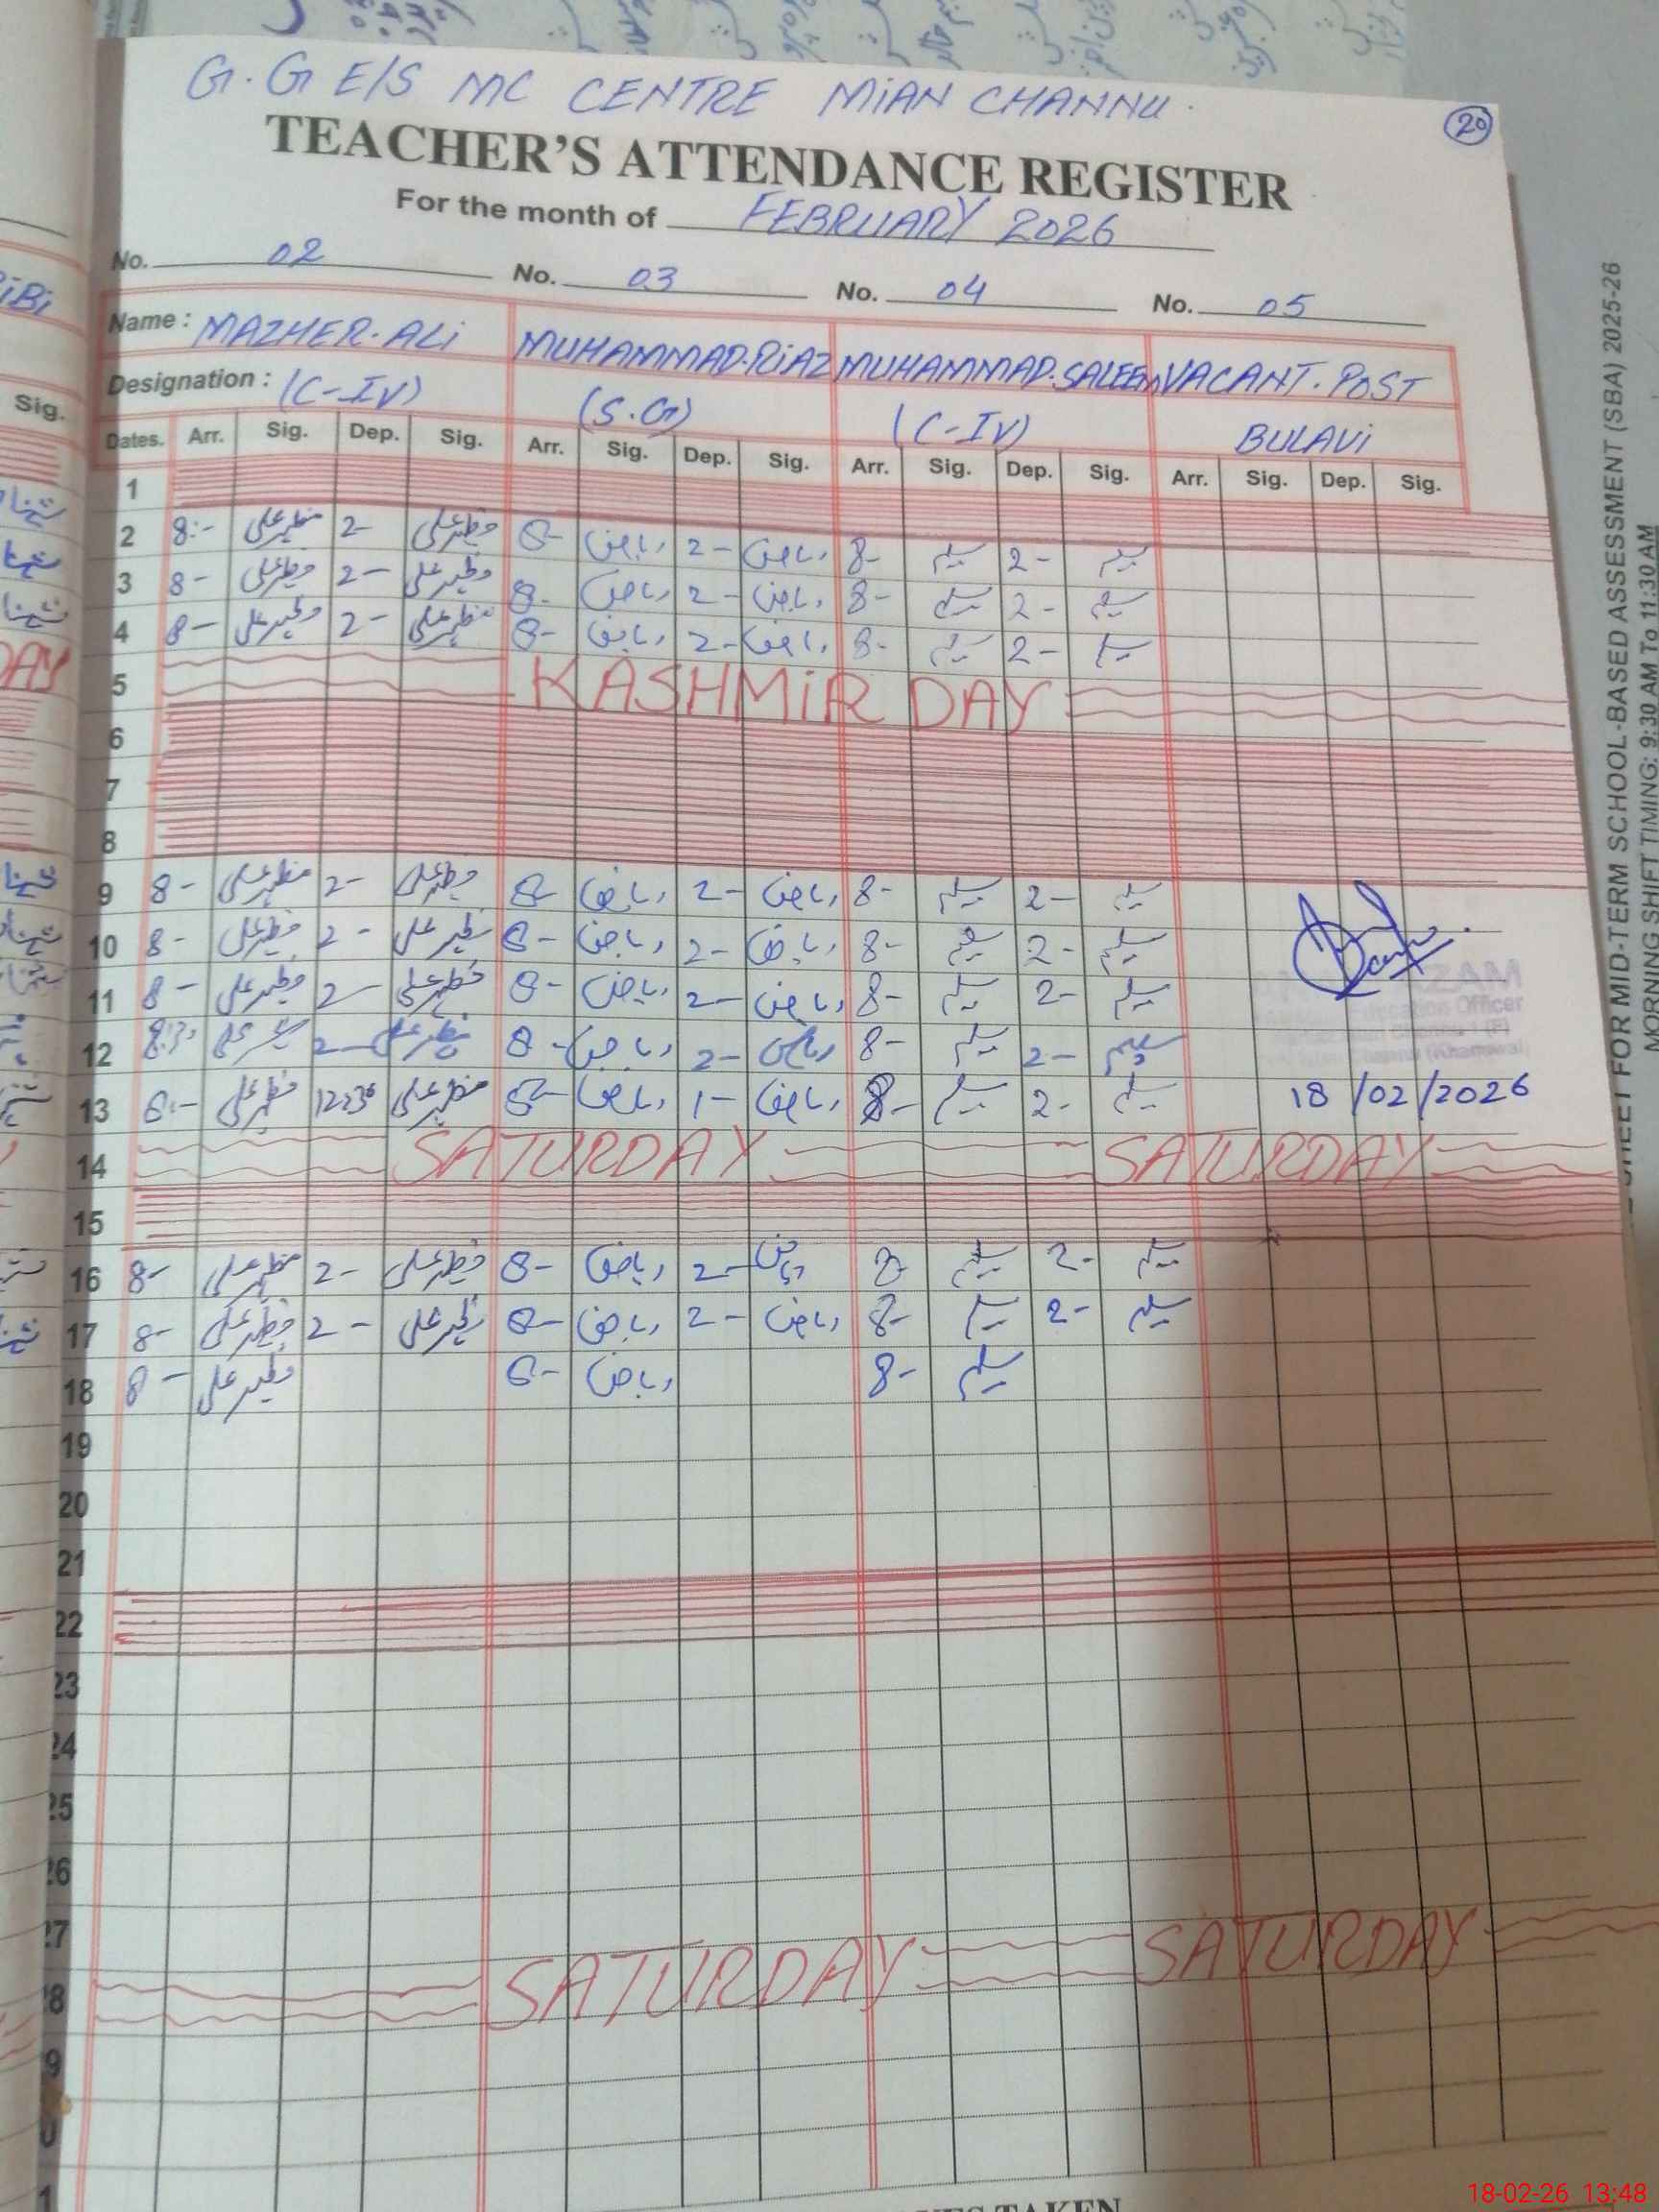 G.G E/S MC CENTRE MIAN CHANNU.
20
TEACHER'S ATTENDANCE REGISTER
For the month of FEBRUARY 2026
No. 02 No. 03 No. 04 No. 05
Name : MAZHER.ALI MUHAMMAD.RIAZ MUHAMMAD.SALEEM VACANT.POST
Designation : (C-IV) (S.G) (C-IV) BULAVI
Dates. Arr. Sig. Dep. Sig. Arr. Sig. Dep. Sig. Arr. Sig. Dep. Sig. Arr. Sig. Dep. Sig.
1
2 8:- مظہر علی 2- مظہر علی 8- ریاض 2- ریاض 8- سلیم 2- سلیم
3 8- مظہر علی 2- مظہر علی 8- ریاض 2- ریاض 8- سلیم 2- سلیم
4 8- مظہر علی 2- مظہر علی 8- ریاض 2- ریاض 8- سلیم 2- سلیم
5 KASHMIR DAY
6
7
8
9 8- مظہر علی 2- مظہر علی 8- ریاض 2- ریاض 8- سلیم 2- سلیم
10 8- مظہر علی 2- مظہر علی 8- ریاض 2- ریاض 8- سلیم 2- سلیم
11 8- مظہر علی 2- مظہر علی 8- ریاض 2- ریاض 8- سلیم 2- سلیم
12 مظہر علی 2- مظہر علی 8- ریاض 2- ریاض 8- سلیم 2- سلیم
13 8:- مظہر علی 12:30 مظہر علی 8- ریاض 1- ریاض 8- سلیم 2- سلیم
AZAM
Education Officer
(Khanewal)
18/02/2026
14 SATURDAY SATURDAY
15
16 8- مظہر علی 2- مظہر علی 8- ریاض 2- ریاض 8- سلیم 2- سلیم
17 8- مظہر علی 2- مظہر علی 8- ریاض 2- ریاض 8- سلیم 2- سلیم
18 8- مظہر علی 8- ریاض 8- سلیم
19
20
21
22
23
24
25
26
27
28 SATURDAY SATURDAY
SHEET FOR MID-TERM SCHOOL-BASED ASSESSMENT (SBA) 2025-26
MORNING SHIFT TIMING: 9:30 AM To 11:30 AM
Sig.
18-02-26 13:48